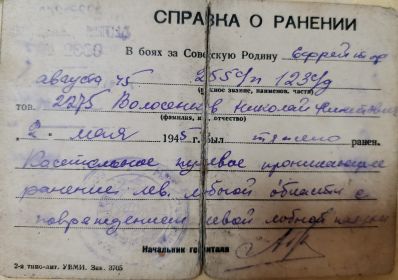 СПРАВКА О РАНЕНИИ
В боях за Советскую Родину ефрейтор
августа 45 255 сп 123 сд
(воинское звание, наименов. части)
тов. 2275 Николай
(фамилия, имя, отчество)
"2" мая 1945 г. был тяжело ранен.
Касательное пулевое проникающее
ранение лев. лобной области с
повреждением левой лобной
Начальник госпиталя
2-я типо-лит. УВМИ. Зак. 3705